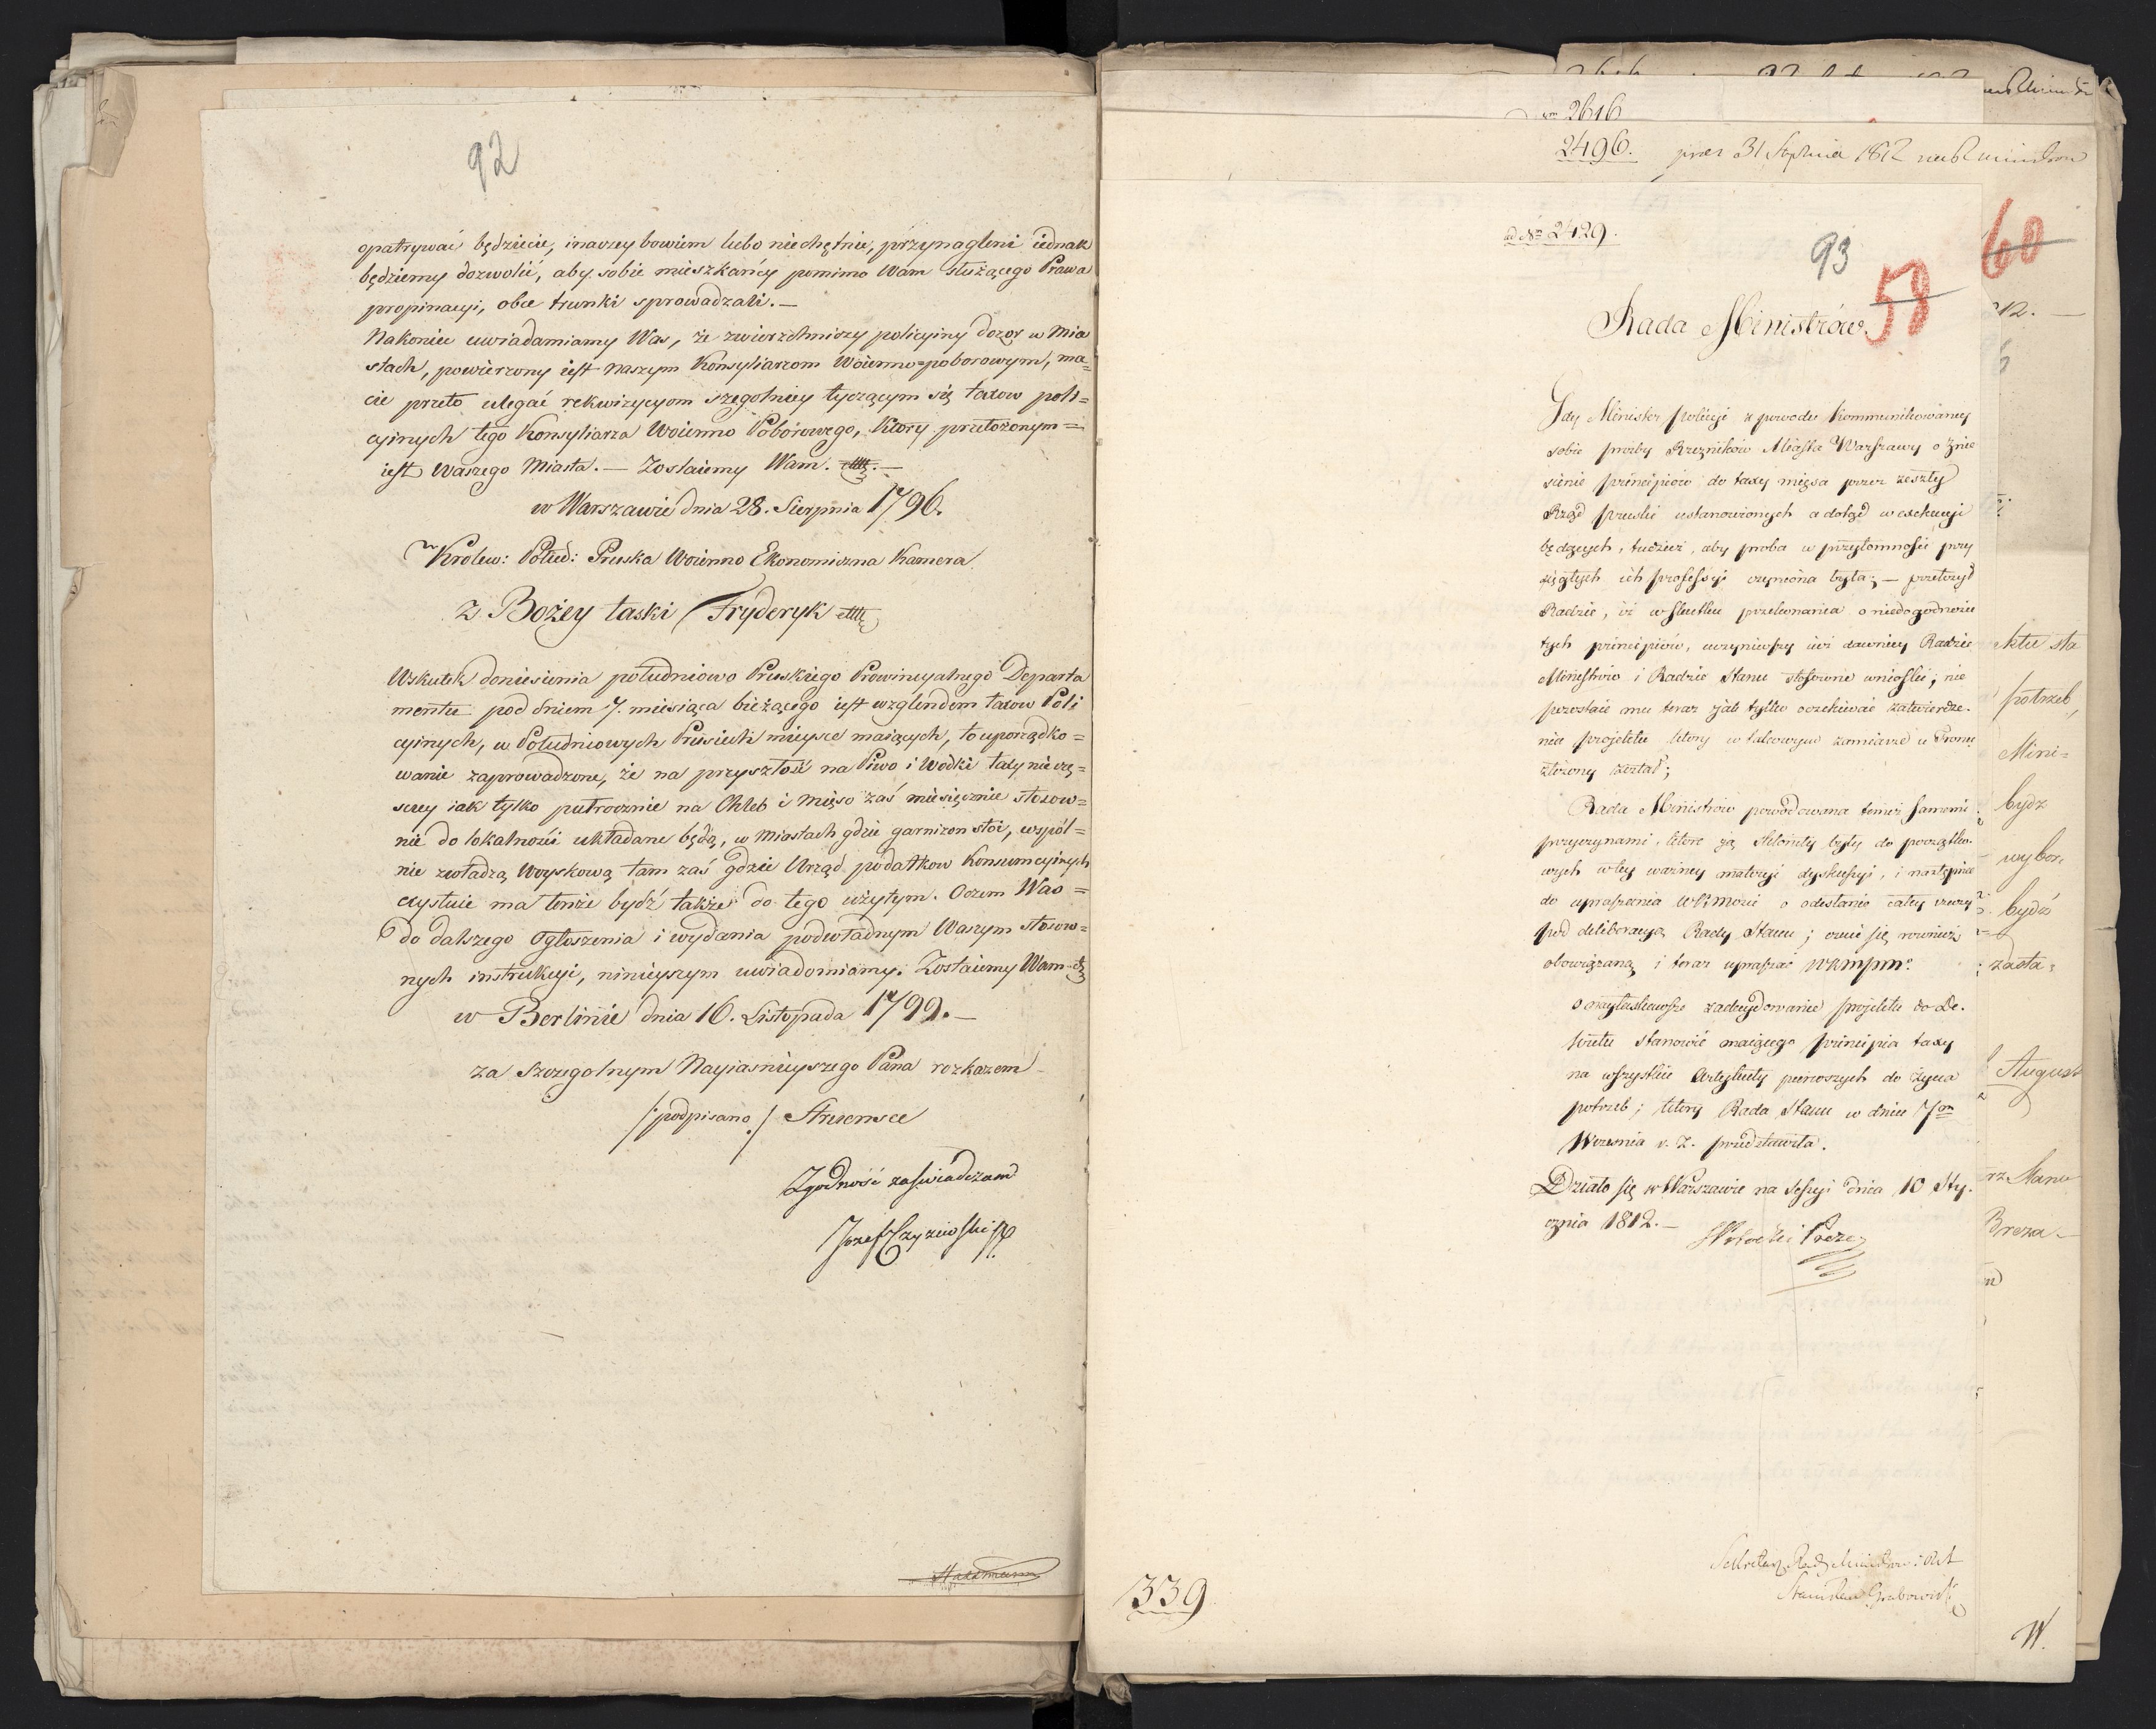 92
opatrywać będziecie, inaczey bowiem lubo niechętnie, przynagleni iednak
będziemy dozwolić, aby sobie mieszkańcy pomimo Wam służącego Prawa
propinacyi, obce trunki sprowadzali. —
Nakoniec uwiadamiamy Was, że zwierzchniczy policyiny dozor w Mia
stach, powierzony iest naszym Konsyliarzom Woienno=poborowym, ma=
cie przeto ulegać rekwizycyom szegolniey tyczącym się taxow poli=
cyinych tego Konsyliarza Woienno Poborowego, Ktory przełożonym=
iest Waszego Miasta. — Zostaiemy Wam.
w Warszawie dnia 28. Sierpnia 1796.
Krolew: Połud: Pruska Woienno Ekonomiczna Kamera
Z Bożey łaski Fryderyk
Wskutek doniesienia południowo Pruskiego Prowincyalnego Departa
mentu pod dniem 7. miesiąca bieżącego iest wzglendem taxow Poli
cyinych, w Południowych Prusiech mieysce maiących, to uporządko=
wanie zaprowadzone, że na przyszłość na Piwo i Wodki taxy nie czę=
sciey iak tylko pułrocznie na Chleb i Mięso zaś miesięcznie stosow=
nie do lokalności układane będą, w Miastach gdzie garnizon stoi, wspól=
nie zwładzą Woyskową tam zaś gdzie Urząd podatkow Konsumcyinych
exystuie ma tenże bydź także do tego użytym. Oczem Was=
do dalszego Ogłoszenia i wydania podwładnym Waszym stosow=
nych instrukcyi, ninieyszym uwiadomiamy. Zostaiemy Wam
w Berlinie dnia 16. Listopada 1799. —
za Szczegolnym Nayiasnieyszego Pana rozkazem
/:podpisano:/ Struensee
Zgodność zaświadczam
Jozef Czyzewski
2616
2496. przez 31 Stycznia 1812
ad No 2429.
93
58
60
Rada Ministrów
Gdy Minister Policyi z powodu kommunikowaney
sobie prozby Rzezników Miasta Warszawy o znie
sienie principiów do taxy mięsa przez zeszły
Rząd pruski ustanowionych a dotąd w exekucyi
będących, tudzież, aby proba w przytomności przy
sięgłych ich professyi czyniona była; — przełożył
Radzie, iż w skutku przekonania o niedogodności
tych principiów, uczyniwszy iuż dawniey Radzie
Ministrów i Radzie Stanu stosowne wnioski, nie
pozostaie mu teraz jak tylko oczekiwać zatwierdze=
nia projektu ktory w takowym zamiarze u Tronu
złożony został;
Rada Ministrów powodowana temiż samemi
przyczynami, ktore ją skłoniły były do początko=
wych w tey ważney materyi dyskussyi, i następnie
do upraszania WKMości o odesłanie całey rzeczy
pod deliberacyą Rady Stanu; czuie się rownież
obowiązaną i teraz upraszać WKMPM:
o nayłaskawsze zadecydowanie projektu do De=
kretu stanowić maiącego principia taxy
na wszystkie Artykuły pierwszych do życia
potrzeb; ktory Rada Stanu w dniu 7on
Wrzesnia r. z. przedstawiła.
Działo się w Warszawie na Sessyi dnia 10 Sty=
cznia 1812. —
SPotocki Prezes
Sekretarz Rady Ministrów
Stanisław Grabowski
339
12.
ktu sta
potrzeb
Mini=
bydz
wybor
bydź
zasta=
August
rz Stanu
Breza
W.